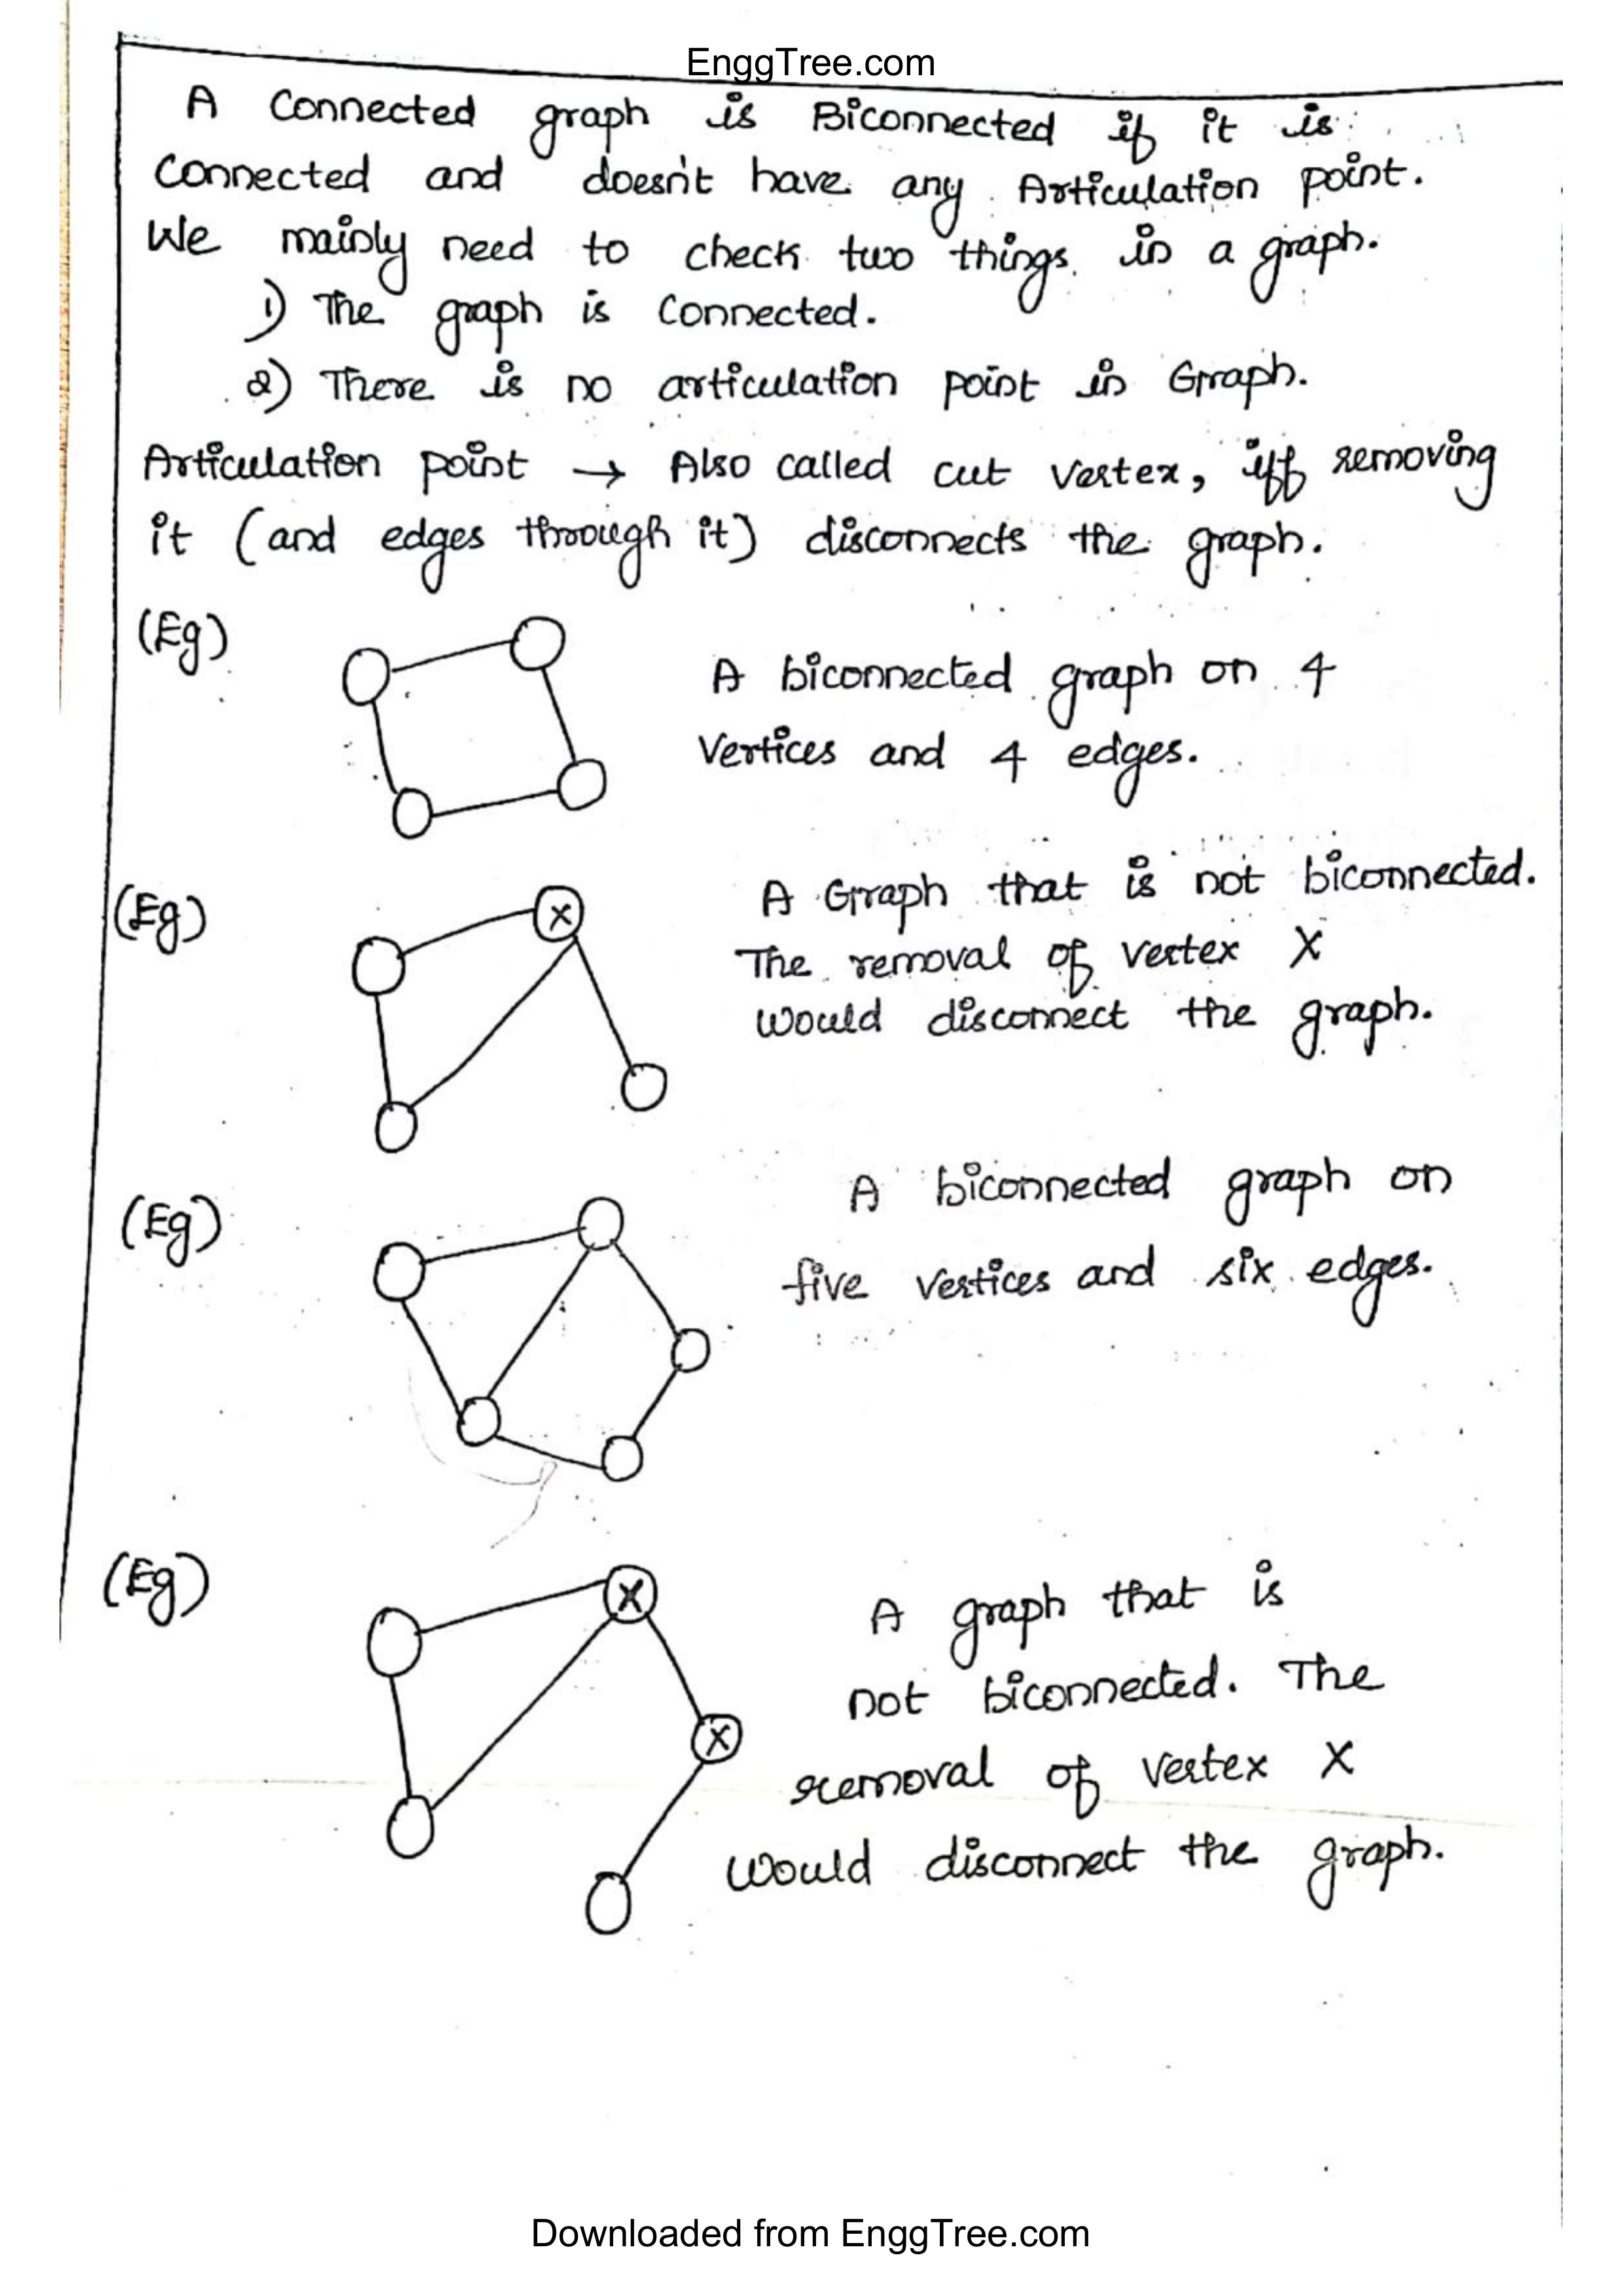 EnggTree.com
A Connected graph is Biconnected if it is
Connected and doesn't have any Articulation point.
We mainly need to check two things in a graph.
1) The graph is Connected.
2) There is no articulation point in Graph.
Articulation point → Also called cut vertex, iff removing
it (and edges through it) disconnects the graph.
(Eg)
A biconnected graph on 4
Vertices and 4 edges.
(Eg)
X
A Graph that is not biconnected.
The removal of vertex X
would disconnect the graph.
(Eg)
A biconnected graph on
five vertices and six edges.
(Eg)
X
X
A graph that is
not biconnected. The
removal of vertex X
would disconnect the graph.
Downloaded from EnggTree.com